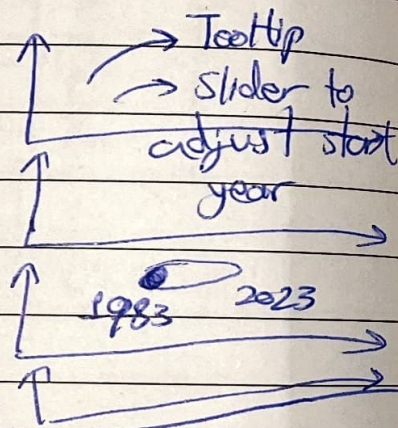 Tooltip
Slider to
adjust start
year
1983 2023